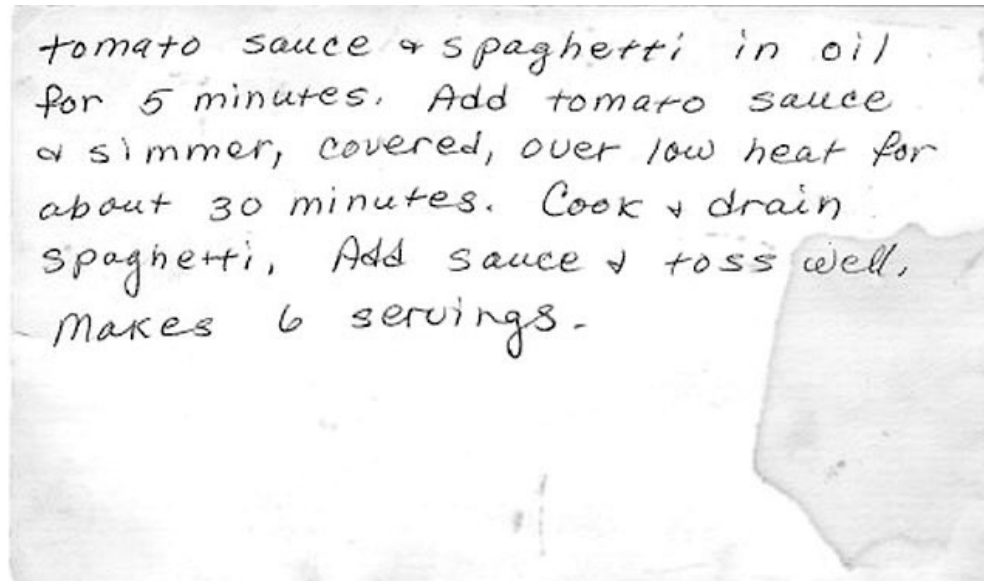 tomato sauce & spaghetti in oil
for 5 minutes. Add tomato sauce
& simmer, covered, over low heat for
about 30 minutes. Cook & drain
spaghetti, Add sauce & toss well,
Makes 6 servings.